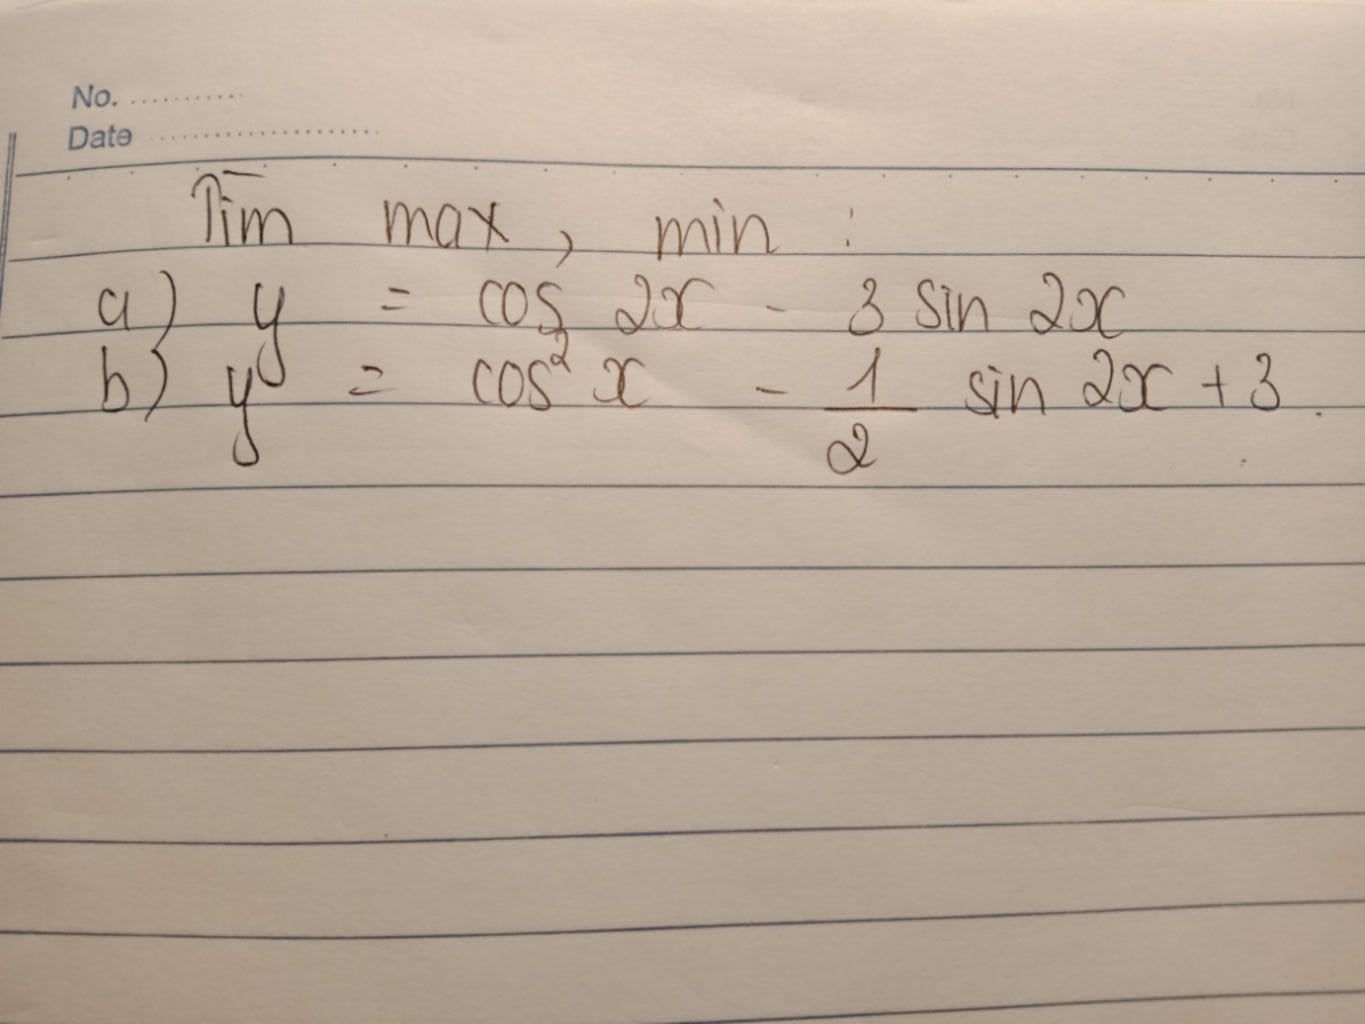 No. ..........
Date ....................
Tìm max, min :
a) y = cos 2x - 3 sin 2x
b) y = cos² x - 1/2 sin 2x + 3.